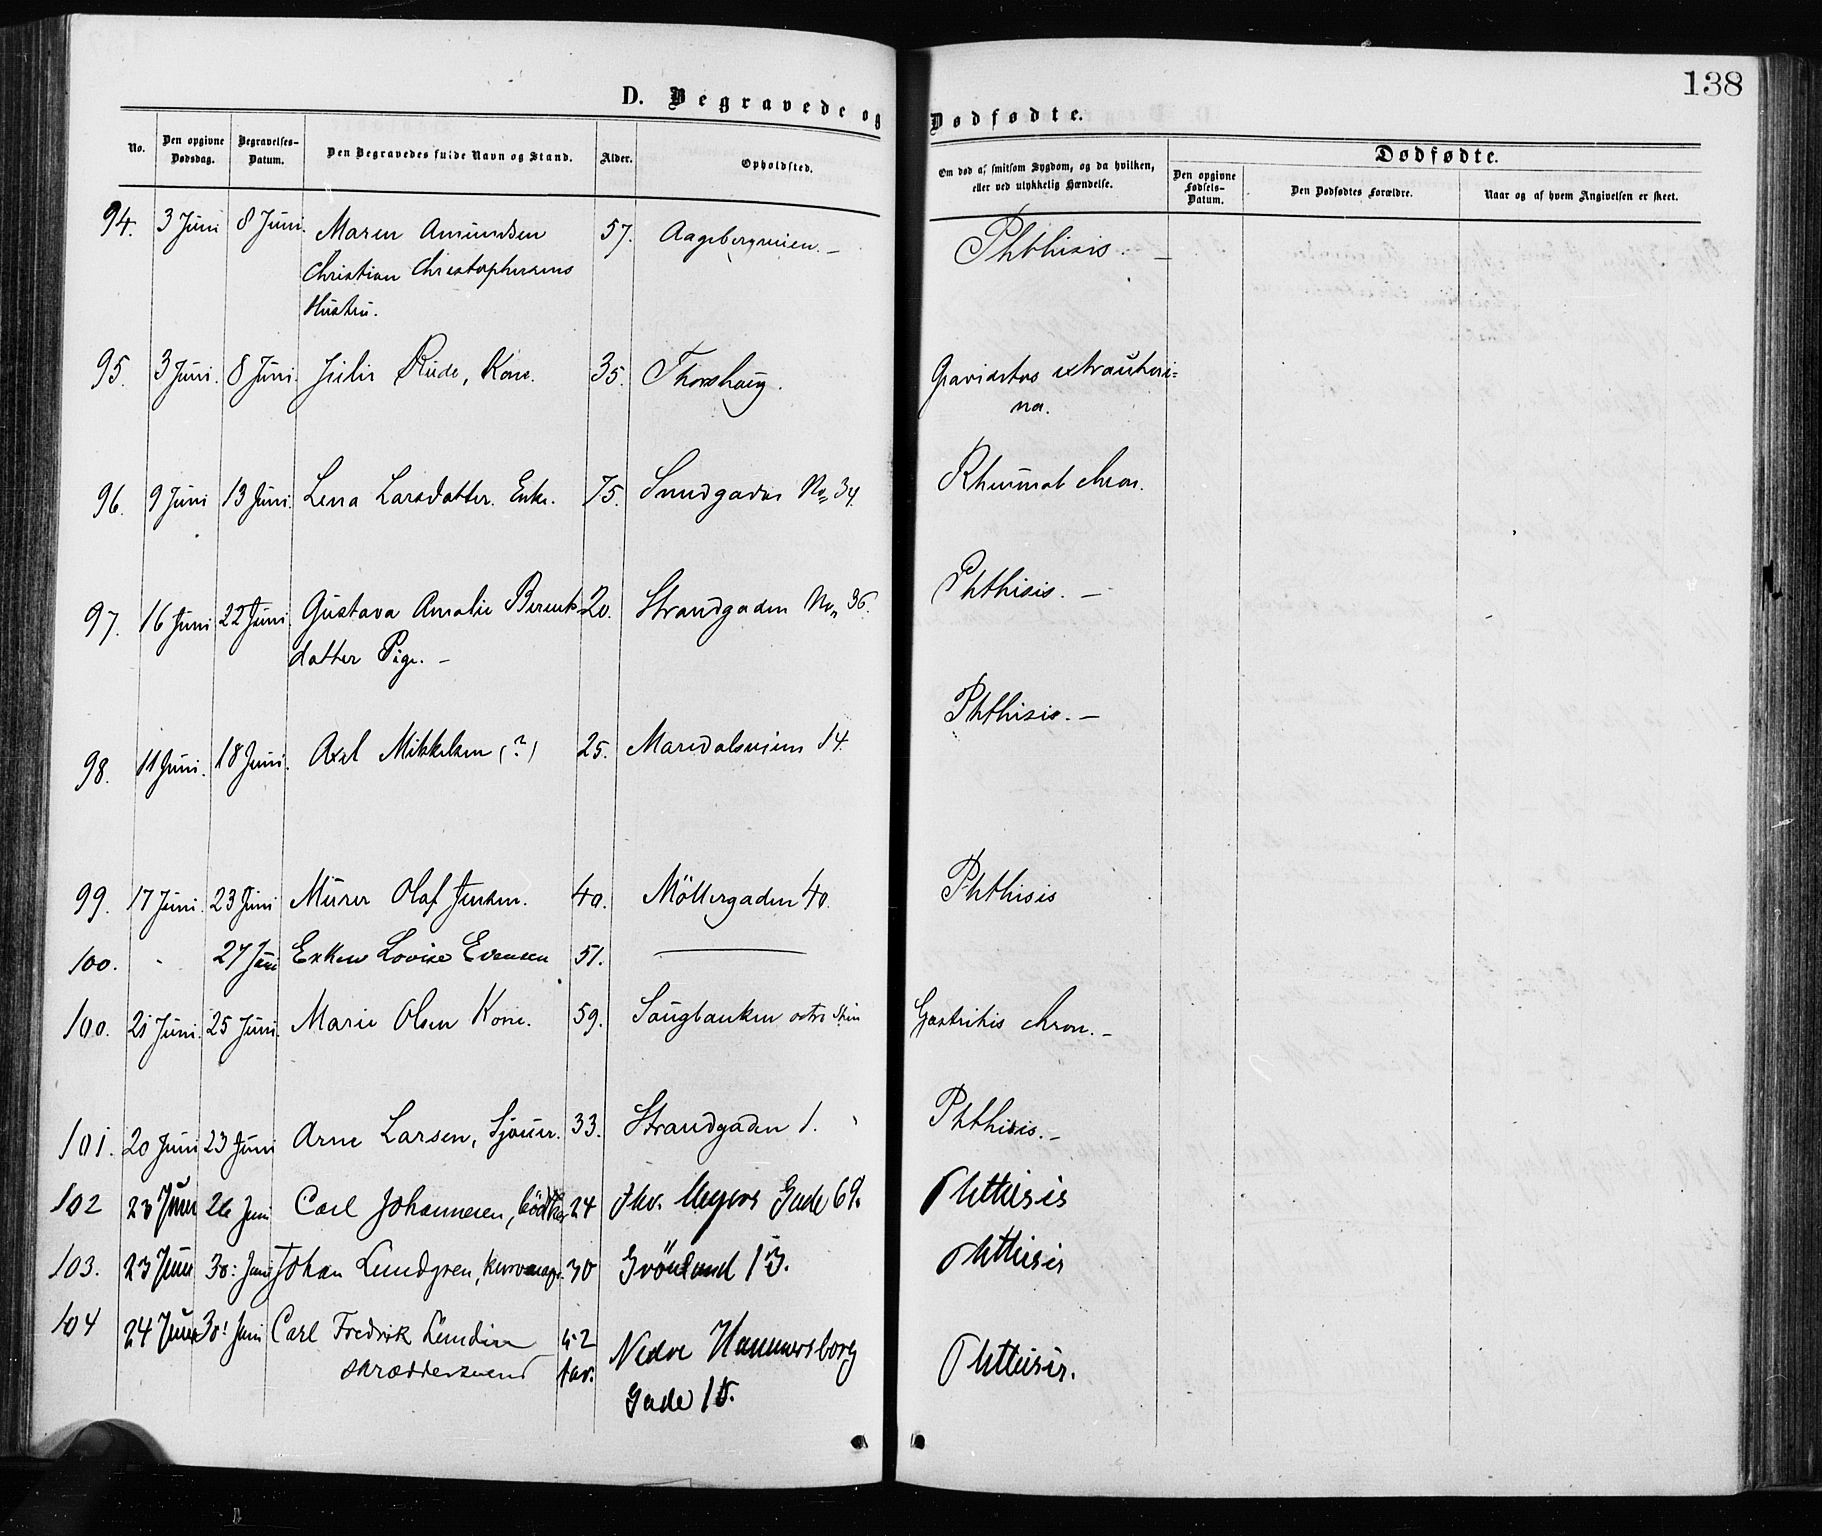 138
D. Begravede og Dødfødte.
No.
Den opgivne Dødsdag.
Begravelses-Datum.
Den Begravedes fulde Navn og Stand.
Alder.
Opholdsted.
Om død af smitsom Sygdom, og da hvilken, eller ved ulykkelig Hændelse.
Dødfødte.
Den opgivne Fødsels-Datum.
Den Dødfødtes Forældre.
Naar og af hvem Angivelsen er skeet.
94. 3 Juni 8 Juni. Maren Amundsen 57. Aagebergveien. – Phthisis. –
Christian Christophersens
Hustru.
95. 3 Juni. 8 Juni. Julie Rude, Kone. 35. Thorshaug. Graviditas extrauteri=
na.
96. 9 Juni 13 Juni. Lena Larsdatter. Enke. 75. No 34. Rheumat chron.
97. 16 Juni 22 Juni. Gustava Amalie Berents 20. Strandgaden No 36. Phthisis. –
datter Pige. –
98. 11 Juni. 18 Juni. Axel Mikkelsen (?) 25. Maridalsveien 14. Phthisis. –
99. 17 Juni. 23 Juni Murer Olaf Jensen. 40. Möllergaden 40. Phthisis
100. - 27 Juni Enken Lovise Evensen 51. —
100. 21 Juni. 25 Juni. Marie Olsen Kone. 59. Saugbanken Gastritis chron. –
101. 20 Juni 23 Juni Arne Larsen, Sjouer. 33. Strandgaden 1. Phthisis. –
102 23 Juni 26 Juni Carl Johannesen, bödker 24 Thv. Meyers Gade 69. Phthisis
103. 23 Juni 30: Juni Johan Lundgren, kurvmager 30 Grönland 13. Phthisis
104 24 Juni 30! Juni Carl Fredrik Lundin 52 Nedre Hammersborg Phthisis.
skræddersvend aar. Gade 15.